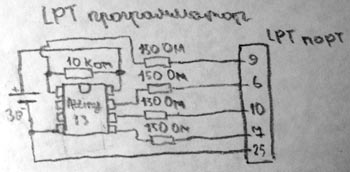 LPT программатор
LPT порт
150 Ом
9
10 Ком
150 Ом
6
Attiny
13
150 Ом
10
3В
150 Ом
7
25